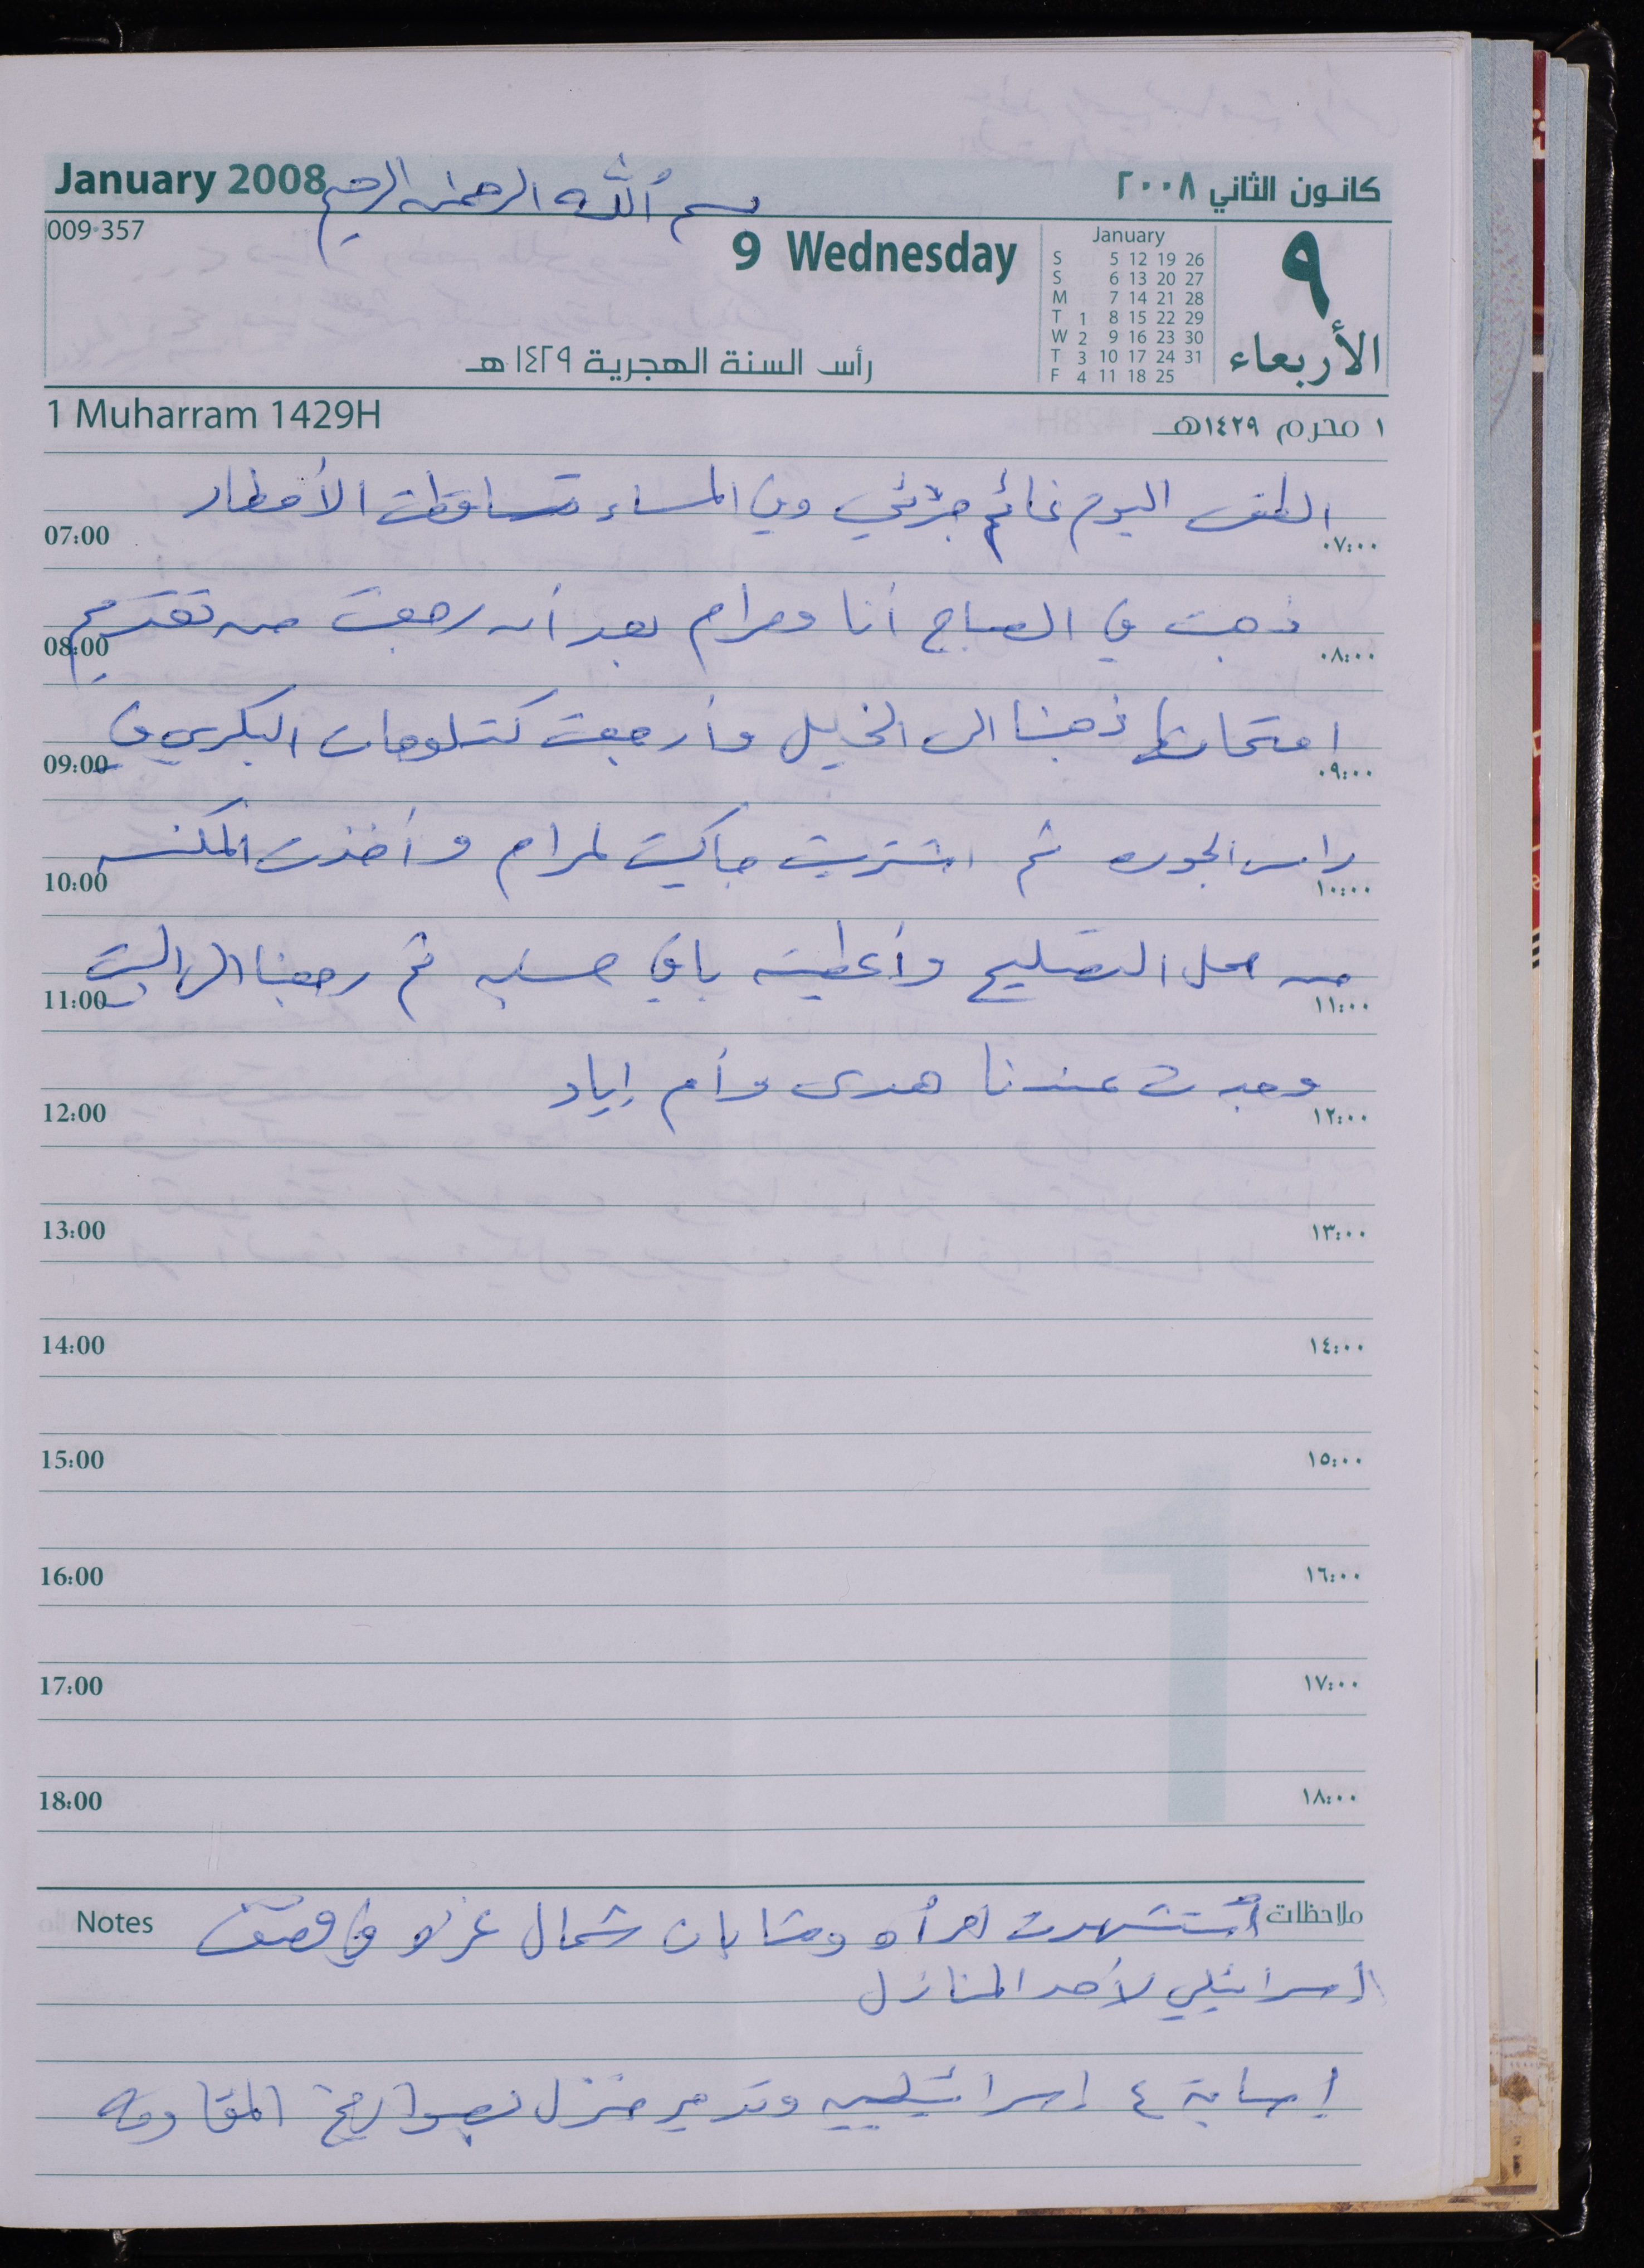 January 2008
بسم الله الرحمن الرحيم
كانون الثاني ٢٠٠٨
009-357
9 Wednesday
January
S 5 12 19 26
S 6 13 20 27
M 7 14 21 28
T 1 8 15 22 29
W 2 9 16 23 30
T 3 10 17 24 31
F 4 11 18 25
٩
الأربعاء
رأس السنة الهجرية ١٤٢٩هـ
1 Muharram 1429H
١ محرم ١٤٢٩هـ
الطقس اليوم غائم جزئي وفي المساء تساقطت الأمطار
07:00 ٠٧:٠٠
ذهبت في الصباح أنا ومرام بعد أن رجعت من تقديم
08:00 ٠٨:٠٠
امتحانها ذهبنا الى الخليل وأرجعت كتلوجات البكري في
09:00 ٠٩:٠٠
راس الجوره ثم اشتريت جاكيت لمرام وأخذت المكنسه
10:00 ١٠:٠٠
من محل التصليح وأعطيته باقي حسابه ثم رجعنا الى البيت
11:00 ١١:٠٠
وجدت عندنا هدى وأم إياد
12:00 ١٢:٠٠
13:00 ١٣:٠٠
14:00 ١٤:٠٠
15:00 ١٥:٠٠
16:00 ١٦:٠٠
17:00 ١٧:٠٠
18:00 ١٨:٠٠
1
Notes ملاحظات
أستشهدت امرأه وشابان شمال غزه في قصف
اسرائيلي لأحد المنازل
إصابة ٤ إسرائيليين وتدمير منزل بصواريخ المقاومه